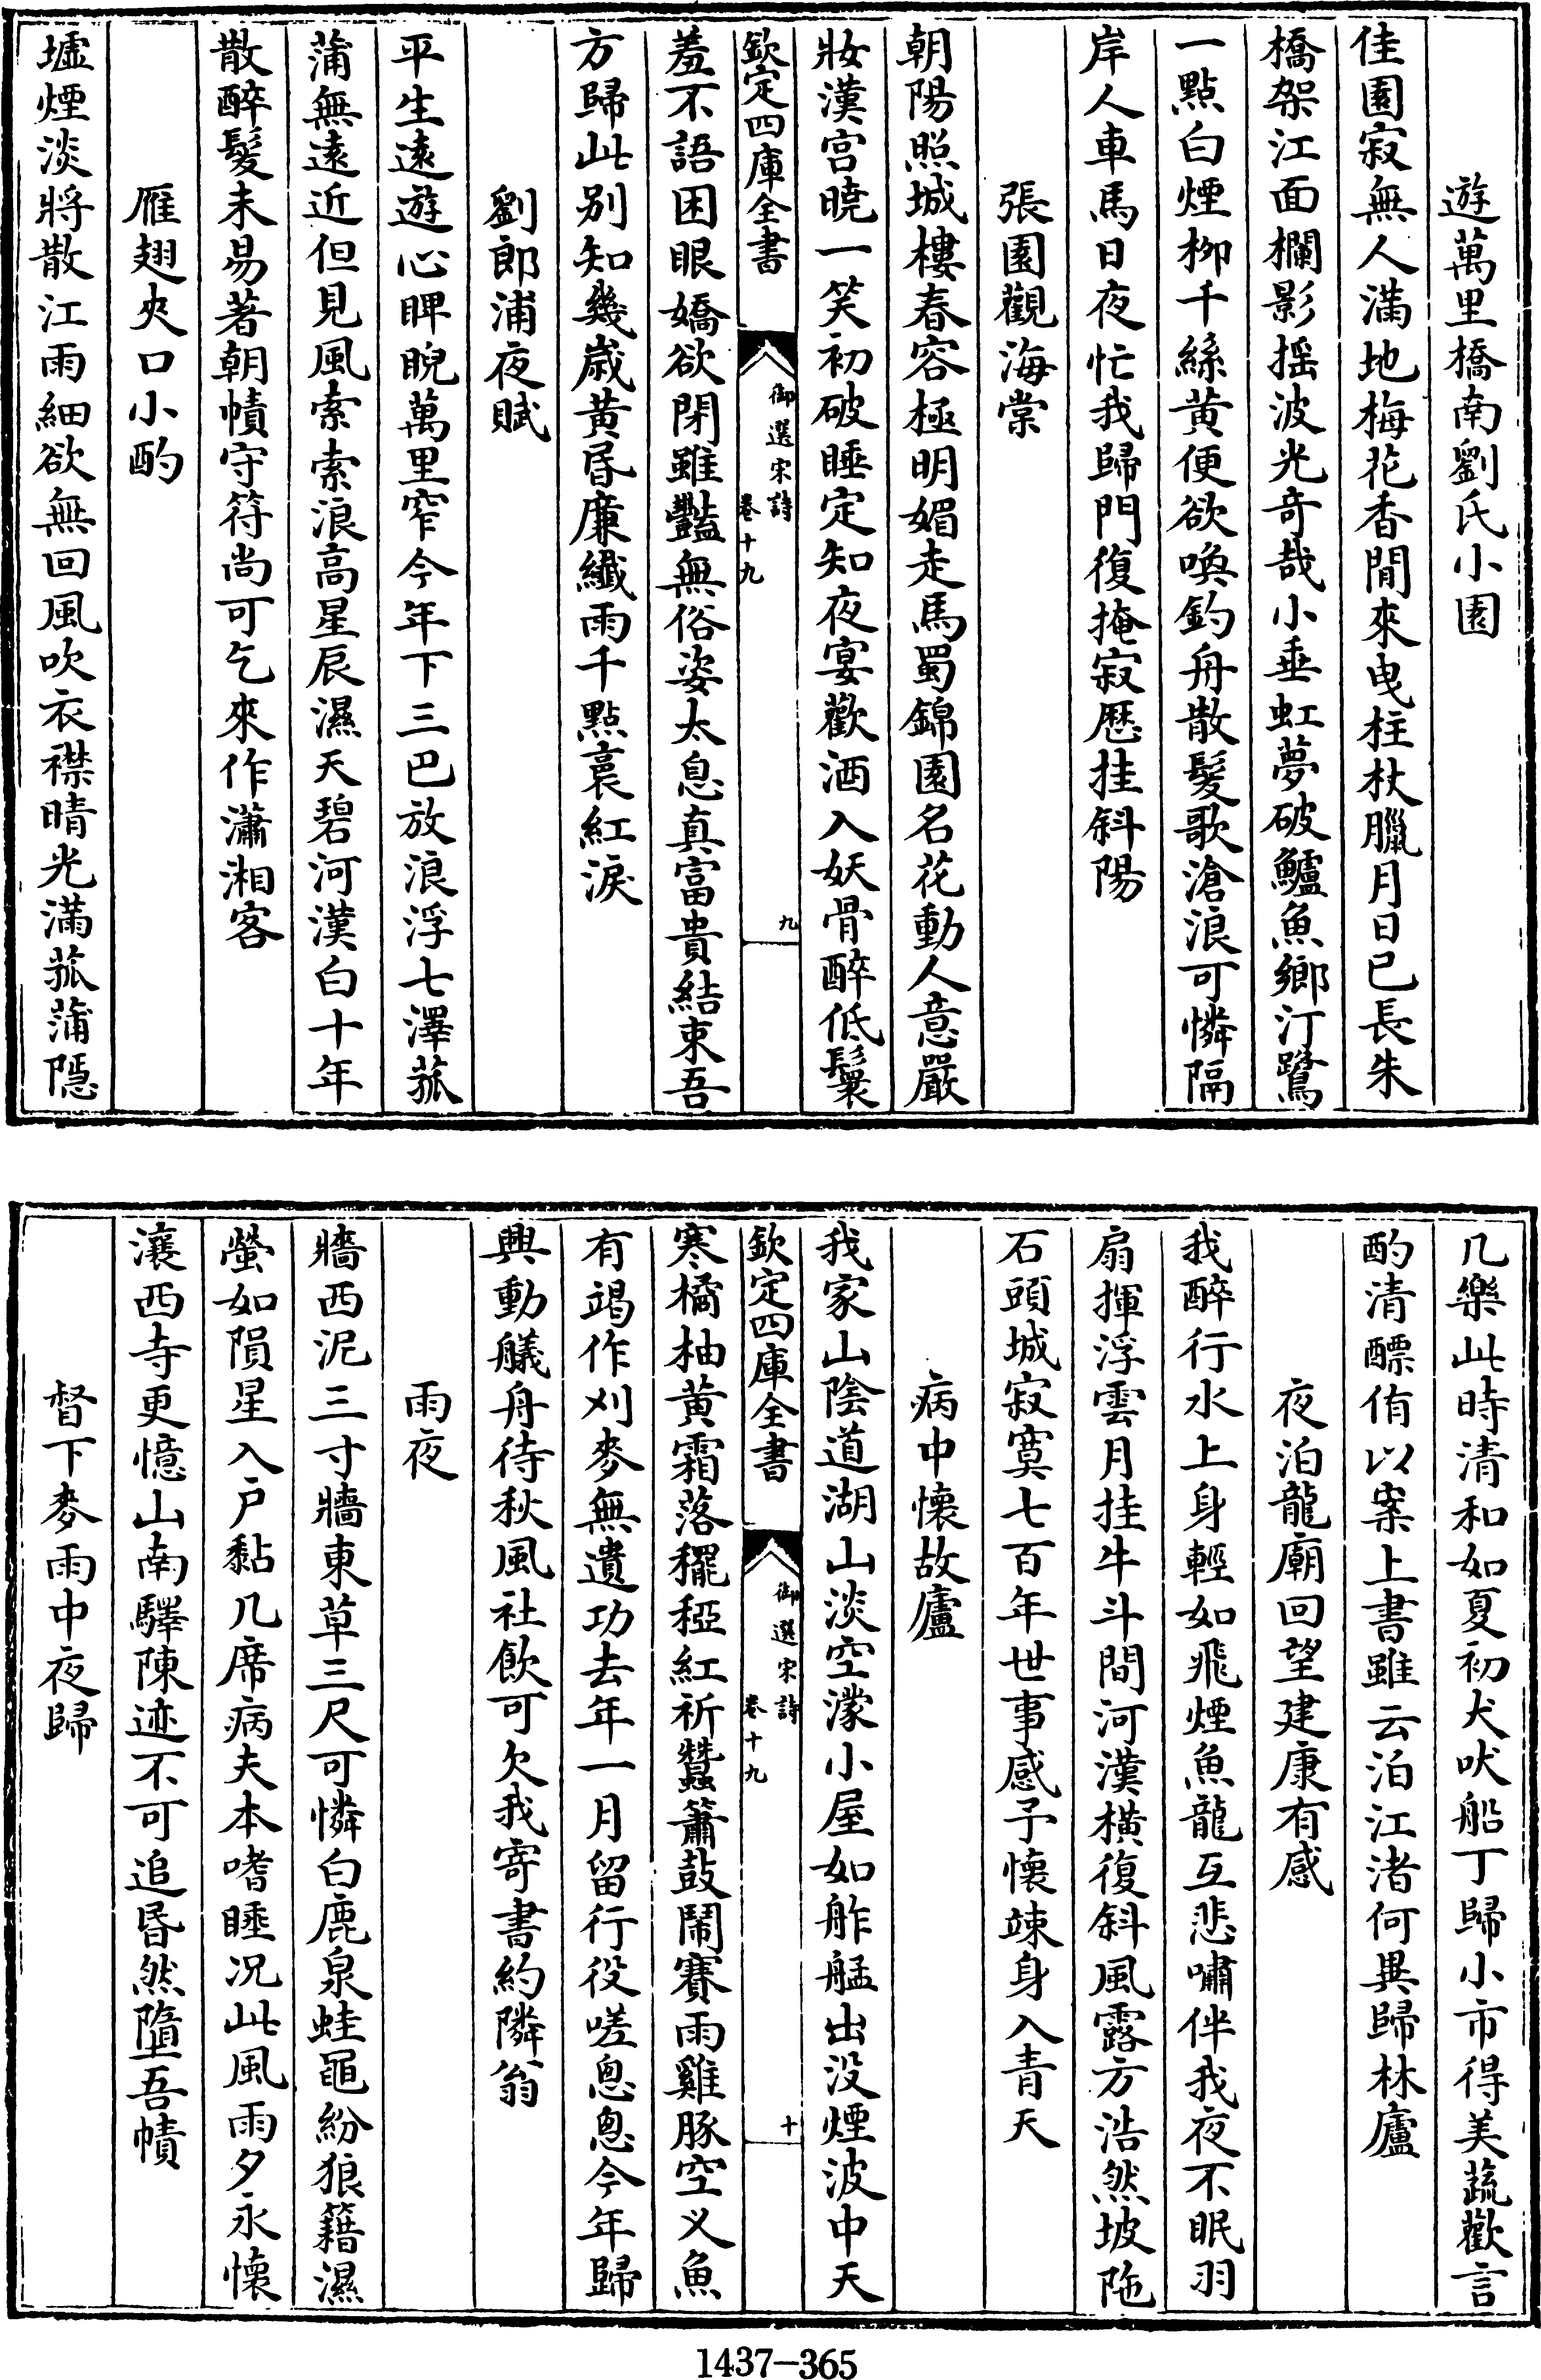 遊萬里橋南劉氏小園
佳園寂無人滿地梅花香閒來曳柱杖臘月日已長朱
橋架江面欄影揺波光奇哉小垂虹夢破鱸魚鄉汀鷺
一點白煙柳千絲黃便欲喚釣舟散髮歌滄浪可憐隔
岸人車馬日夜忙我歸門復掩寂歷挂斜陽
張園觀海棠
朝陽照城樓春容極明媚走馬蜀錦園名花動人意嚴
妝漢宮曉一笑初破睡定知夜宴歡酒入妖骨醉低鬟
欽定四庫全書
御選宋詩
卷十九
九
羞不語困眼嬌欲閉雖豔無俗姿太息真富貴結束吾
方歸此别知幾歲黃昏廉纖雨千點裛紅淚
劉郎浦夜賦
平生遠遊心睥睨萬里窄今年下三巴放浪浮七澤菰
蒲無遠近但見風索索浪高星辰濕天碧河漢白十年
散醉髮未易著朝幘守符尚可乞來作瀟湘客
雁翅夾口小酌
墟煙淡將散江雨細欲無回風吹衣襟晴光滿菰蒲隱
几樂此時清和如夏初犬吠船丁歸小市得美蔬歡言
酌清醥侑以案上書雖云泊江渚何異歸林廬
夜泊龍廟回望建康有感
我醉行水上身輕如飛煙魚龍互悲嘯伴我夜不眠羽
扇揮浮雲月挂牛斗間河漢橫復斜風露方浩然坡陁
石頭城寂寞七百年世事感予懷竦身入青天
病中懷故廬
我家山陰道湖山淡空濛小屋如舴艋出没煙波中天
欽定四庫全書
御選宋詩
卷十九
十
寒橘柚黃霜落䆉稏紅祈蠶簫鼓鬧賽雨雞豚空义魚
有竭作刈麥無遺功去年一月留行役嗟悤悤今年歸
興動艤舟待秋風社飲可欠我寄書約隣翁
雨夜
牆西泥三寸牆東草三尺可憐白鹿泉蛙黽紛狼籍濕
螢如隕星入户黏几席病夫本嗜睡况此風雨夕永懷
瀼西寺更憶山南驛陳迹不可追昏然墮吾幘
督下麥雨中夜歸
1437—365